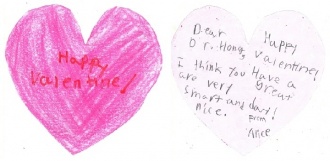 Happy
Valentine!
Dear
Dr. Hong,
I think you
are very
smart and
nice.
Happy
Valentine!
Have a
great
day!
from